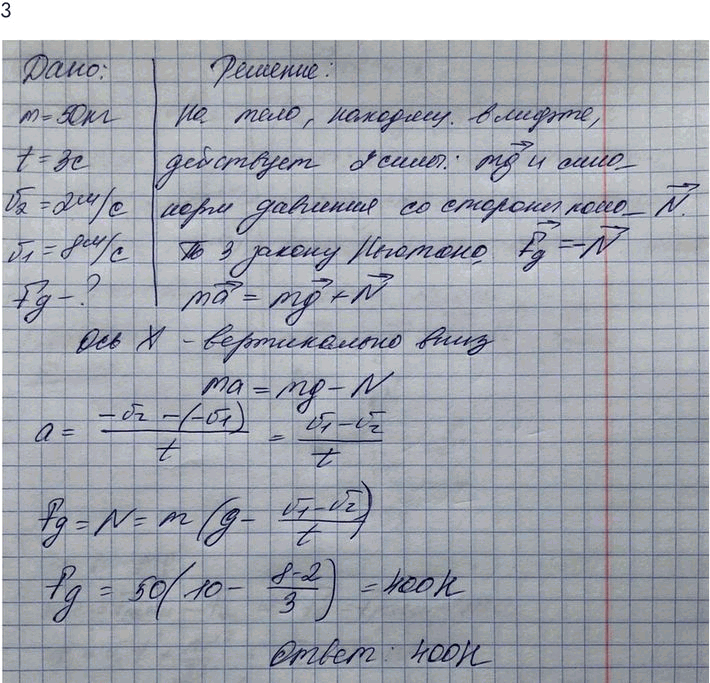 3
Дано:
Решение:
m = 50 кг
t = 3 с
v₂ = 2 м/с
v₁ = 8 м/с
Fg - ?
На тело, находящ. в лифте,
действует 2 силы: mg⃗ и сила
норм давления со стороны пола N⃗.
По 3 закону Ньютона F⃗g = -N⃗
ma⃗ = mg⃗ + N⃗
Ось X - вертикально вниз
ma = mg - N
a = (-v₂ - (-v₁))/t = (v₁ - v₂)/t
Fg = N = m(g - (v₁ - v₂)/t)
Fg = 50(10 - (8-2)/3) = 400Н
Ответ: 400Н